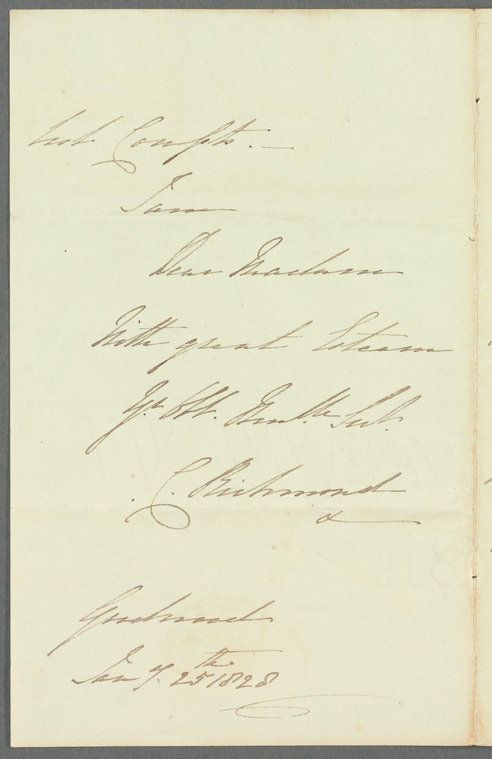 best Compts. —
I am
Dear Madam
With great Esteem
Yr. Obt. Humble Sert.
C. Richmond
&
Goodwood
Jany. 25th 1828